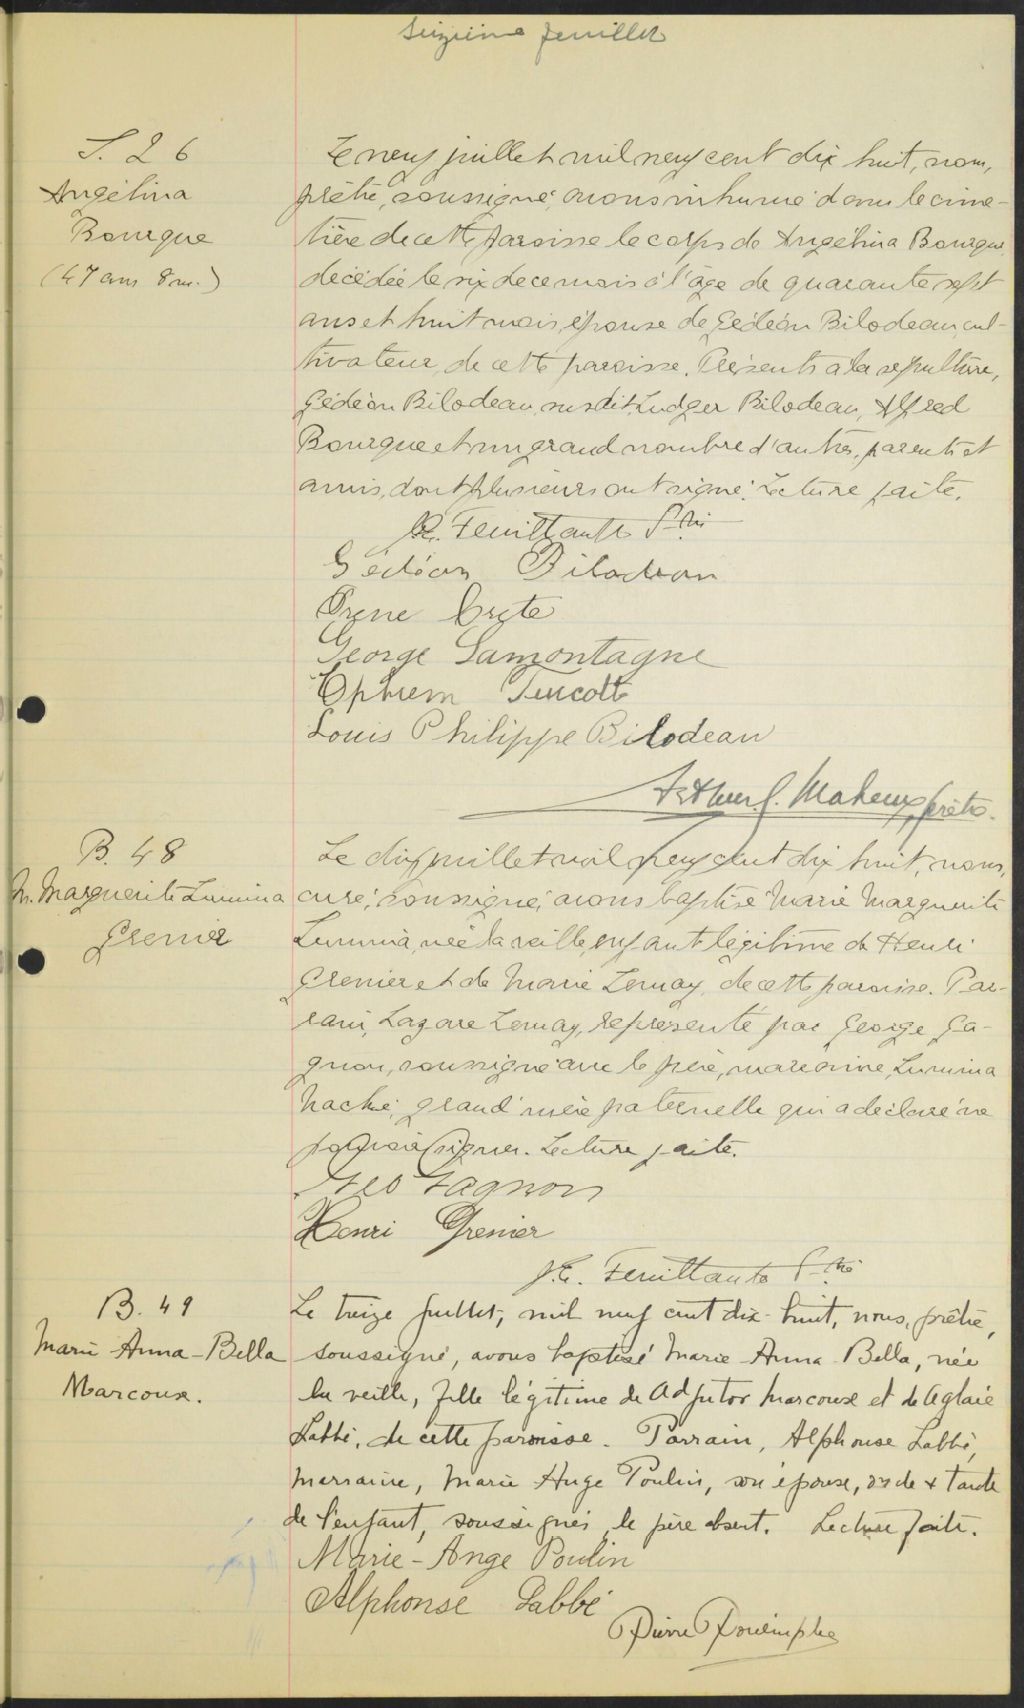 Seizième feuillet
S. 26
Angélina
Bourque
(47 ans 8 m.)
Le neuf juillet mil neuf cent dix huit, nous,
prêtre, soussigné, avons inhumé dans le cime-
tière de cette paroisse le corps de Angélina Bourque
décédée le six de ce mois à l'âge de quarante sept
ans et huit mois, épouse de Gédéon Bilodeau, cul-
tivateur, de cette paroisse. Présents à la sépulture,
Gédéon Bilodeau, susdit, Ludger Bilodeau, Alfred
Bourque et un grand nombre d'autres, parents et
amis, dont plusieurs ont signé. Lecture faite.
J.E. Feuiltault Ptre
Gédéon Bilodeau
Irene Crete
George Lamontagne
Ephrem Turcotte
Louis Philippe Bilodeau
Arthur J. Maheux, prêtre.
B. 48
M. Marguerite Lumina
Grenier
Le dix juillet mil neuf cent dix huit, nous,
curé, soussigné, avons baptisé Marie Marguerite
Lumina, née la veille, enfant légitime de Henri
Grenier et de Marie Lemay, de cette paroisse. Par-
rain, Lazare Lemay, représenté par George Ga-
gnon, soussigné avec le père, marraine, Lumina
Naché, grand'mère paternelle qui a déclaré ne
pouvoir signer. Lecture faite.
Geo Gagnon
Henri Grenier
J.E. Feuiltault Ptre
B. 49
Marie Anna-Bella
Marcoux.
Le treize juillet, mil neuf cent dix-huit, nous, prêtre,
soussigné, avons baptisé Marie-Anna-Bella, née
la veille, fille légitime de Adjutor Marcoux et de Aglaïe
Labbé, de cette paroisse. Parrain, Alphonse Labbé,
marraine, Marie Ange Poulin, son épouse, oncle & tante
de l'enfant, soussignés, le père absent. Lecture faite.
Marie-Ange Poulin
Alphonse Labbé
Pierre